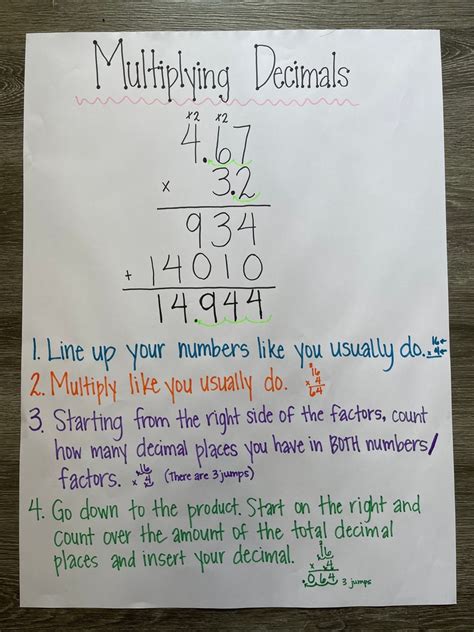 Multiplying Decimals
x2 x2
4.67
x 3.2
934
+ 14010
14.944
1. Line up your numbers like you usually do. 16 x 4
2. Multiply like you usually do. 16 x 4 64
3. Starting from the right side of the factors, count
how many decimal places you have in BOTH numbers/
factors. .16 x .4 (There are 3 jumps)
4. Go down to the product. Start on the right and
count over the amount of the total decimal
places and insert your decimal. .16
x .4
.064 3 jumps